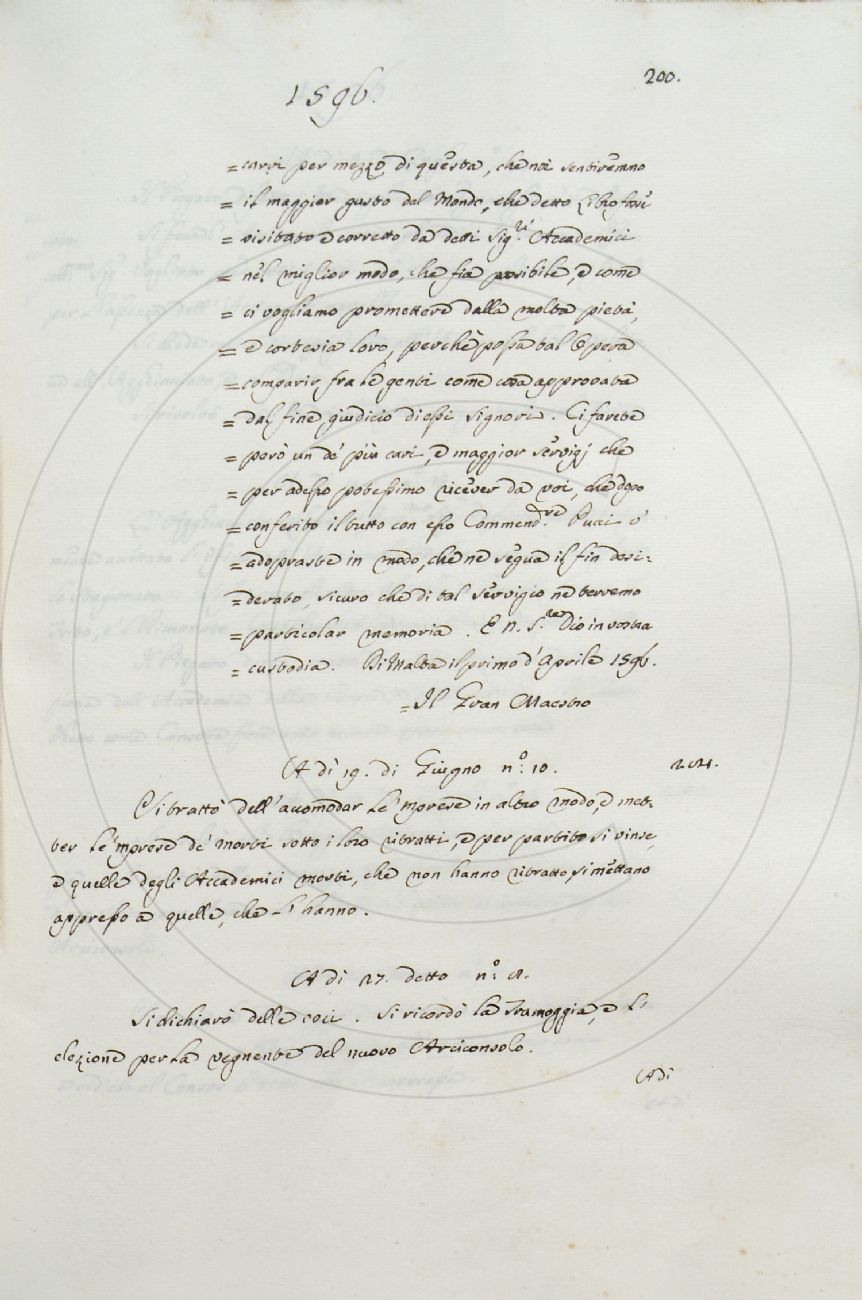 200.
1596.
= carvi per mezzo di questa, che noi sentiremno
= il maggior gusto del Mondo, che detto Libro fusse
= visitato e corretto da detti Sig.ri Accademici
= nel miglior modo, che fia possibile, e come
= ci vogliamo promettere dalla molta pietà,
= e cortesia loro, perchè possa tal Opera
= comparir fra le genti come cosa approvata
= dal fine giudicio di essi Signori. Ci farete
= però un de' più cari, e maggior servigj che
= per adesso potessimo ricever da voi, che dopo
= conferito il tutto con esso Commend.re Pucci v'
= adopraste in modo, che ne segua il fin desi-
= derato, sicuro che di tal servigio ne terremo
= particolar memoria. E N. S.re Dio in vostra
= custodia. Di Malta il primo d'Aprile 1596.
= Il Gran Maestro
A dì 19. di Giugno n.o 10.
Si trattò dell'accomodar le 'mprese in altro modo, e met-
ter le 'mprese de' morti sotto i loro ritratti, e per partito si vinse,
e quelle degli Accademici morti, che non hanno ritratto, si mettano
appresso a quelle, che l'hanno.
A dì 27. detto n.o 8.
Si dichiarò delle voci. Si ricordò la Tramoggia, e l'
elezione per la vegnente del nuovo Arciconsolo.
A dì